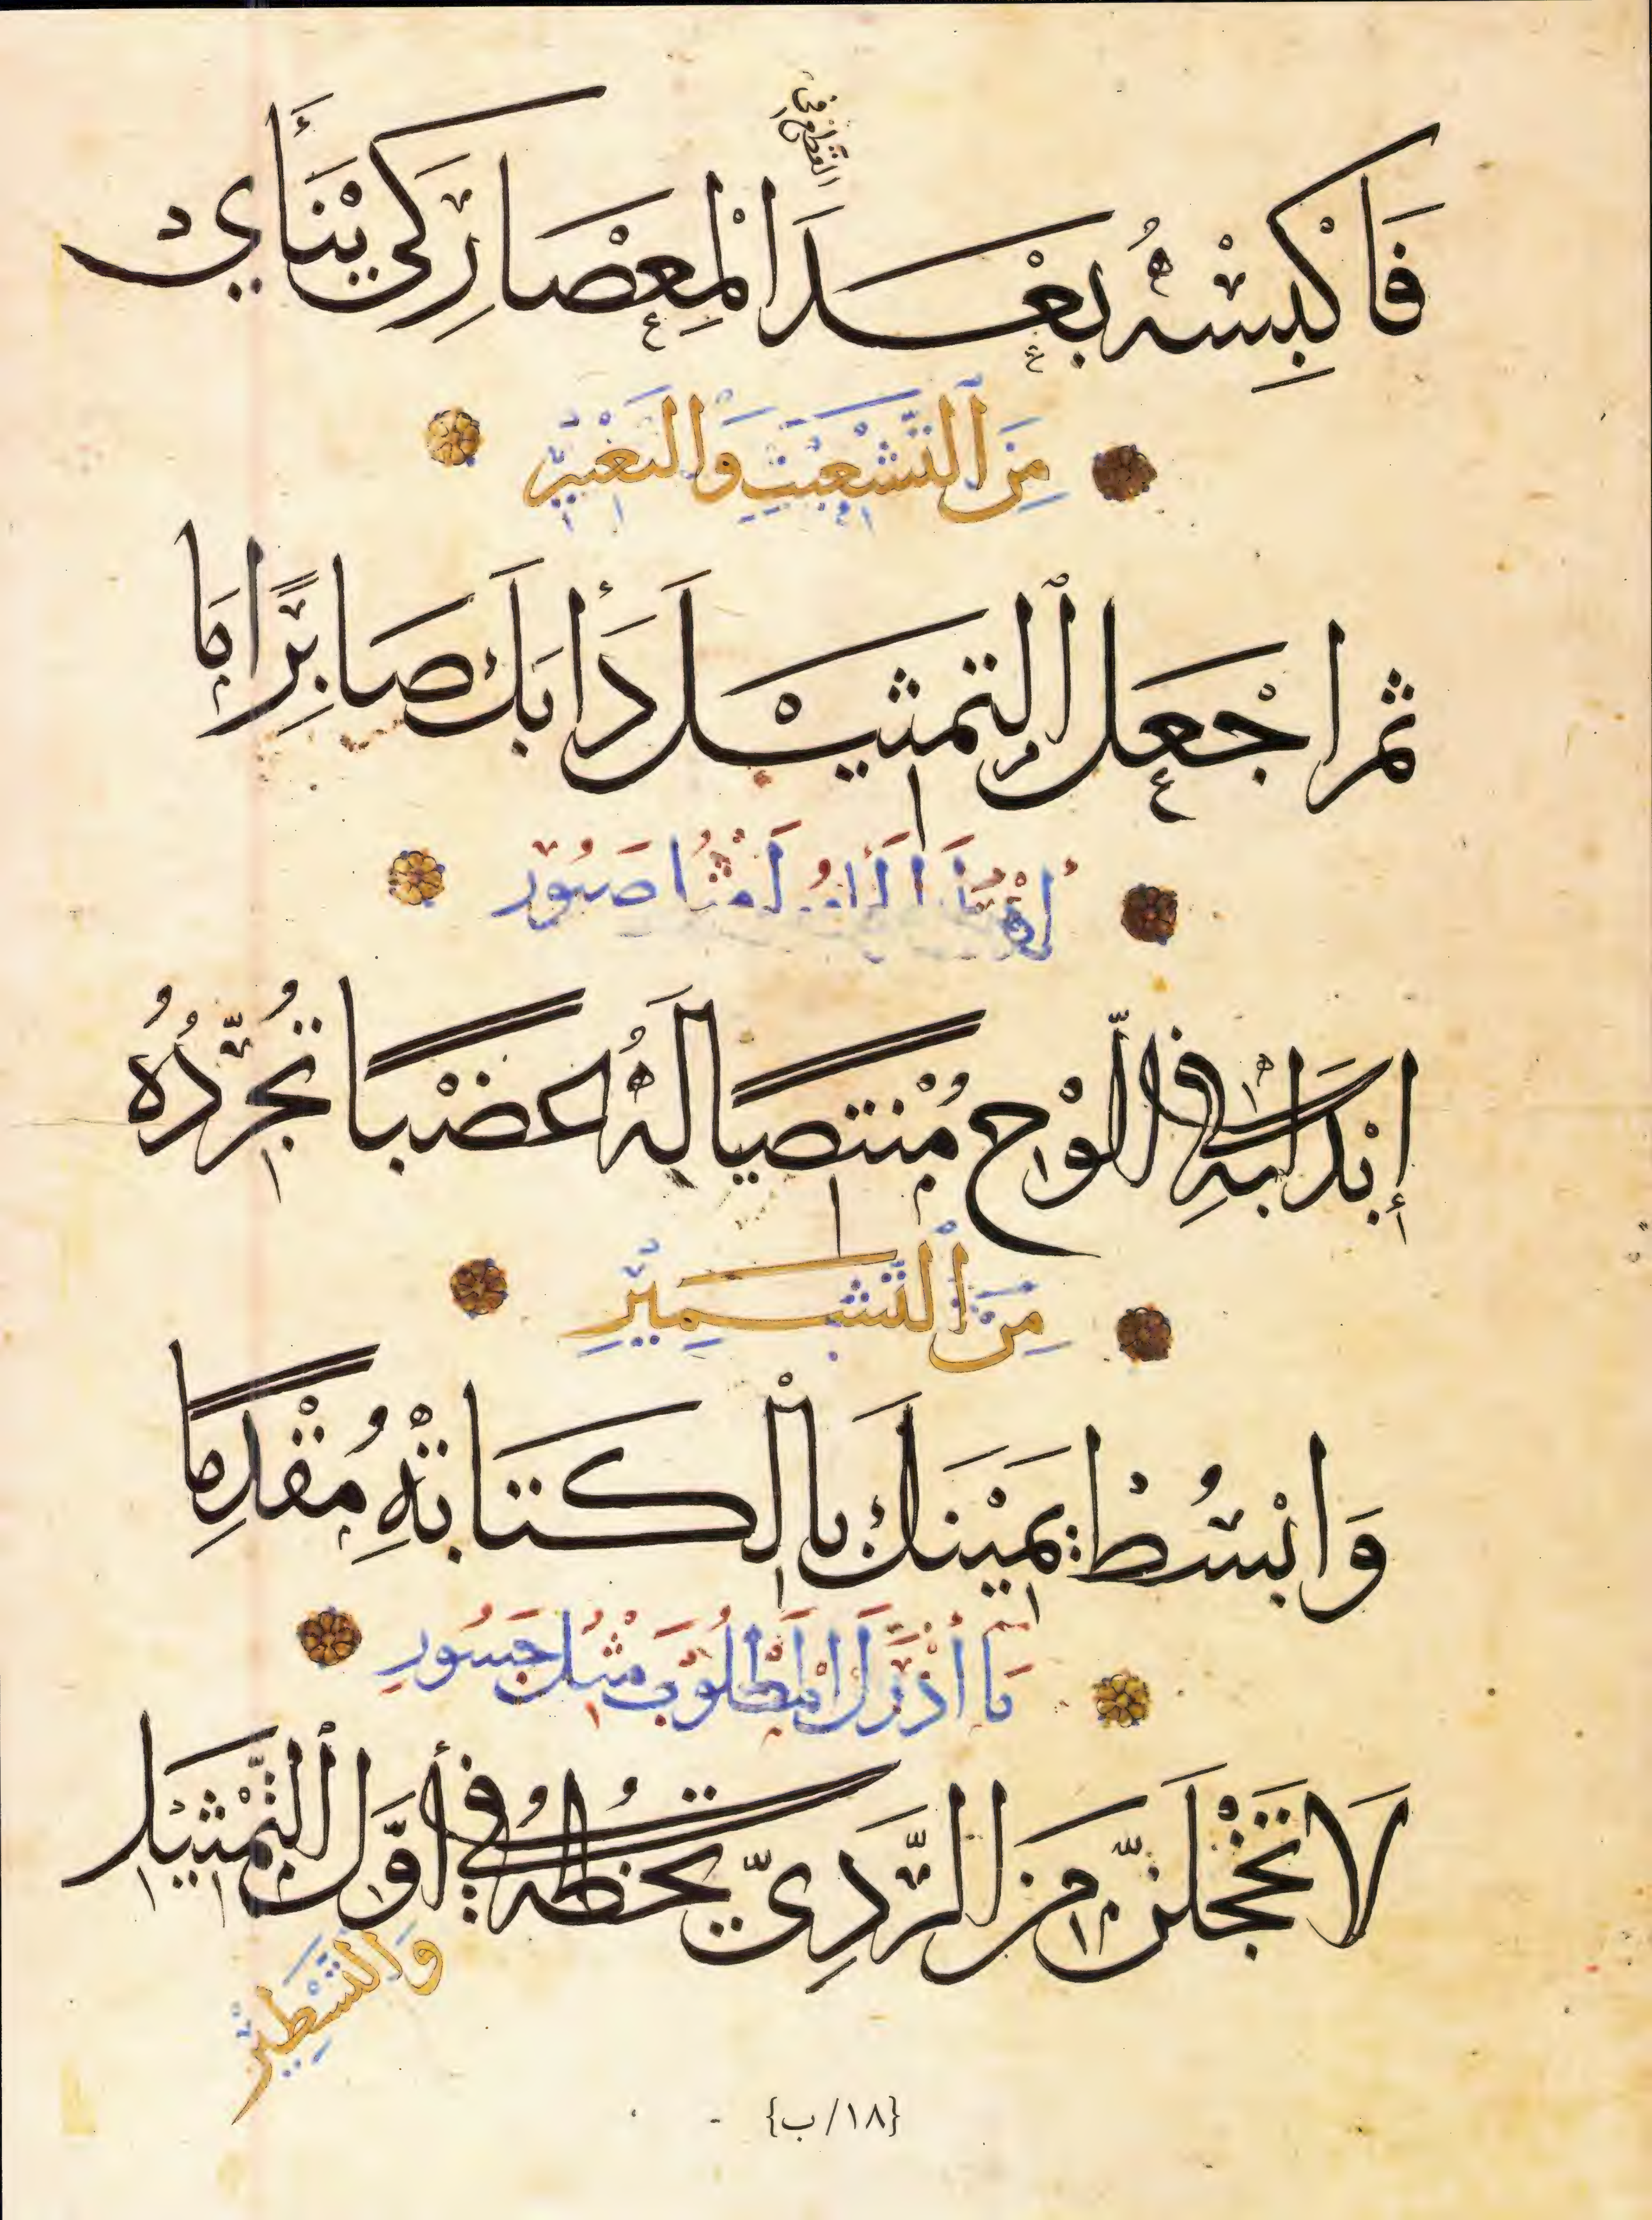 القطع في
فَاكْبِسْهُ بَعْدَ الْمِعْصَارِ كَيْ يَنْأَى
مِنَ التَّشْعِيثِ وَالتَّغْيِيرِ
ثم اجْعَلِ التمثيْلَ دَأْبَكَ صَابِرًا مَا
صَبُور
إبْدَأ بِهِ فِي اللَّوْحِ مُنْتَضِيًا لَهُ عَضْبًا تُجَرِّدُهُ
مِنَ التَّشْمِيْرِ
وَابْسُطْ يَمِيْنَكَ بِالْكتَابَةِ مُقْدِمًا
مَا أدْرَكَ الْمَطْلُوبَ مِثْلُ جَسُورِ
لَا تَخْجَلَنَّ مِنَ الرَّدِيِّ تخُطُّهُ فِي أَوَّلِ التَّمْثِيْلِ
وَالتَّسْطِيْرِ
{١٨/ب}